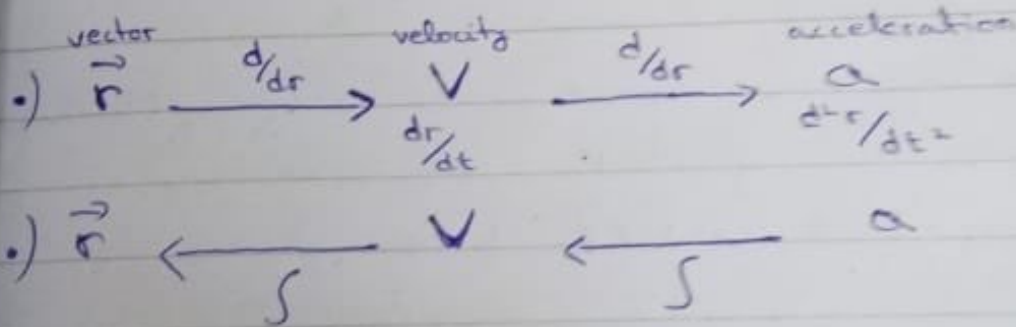 vector velocity acceleration
•) r⃗ —d/dr→ V —d/dr→ a
dr/dt d²r/dt²
•) r⃗ ←∫— V ←∫— a